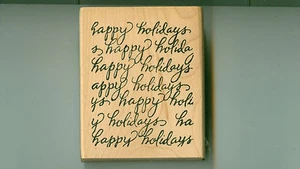 happy holidays
s happy holida
happy holidays
appy holidays
ys happy holi
y holidays ha
happy holidays